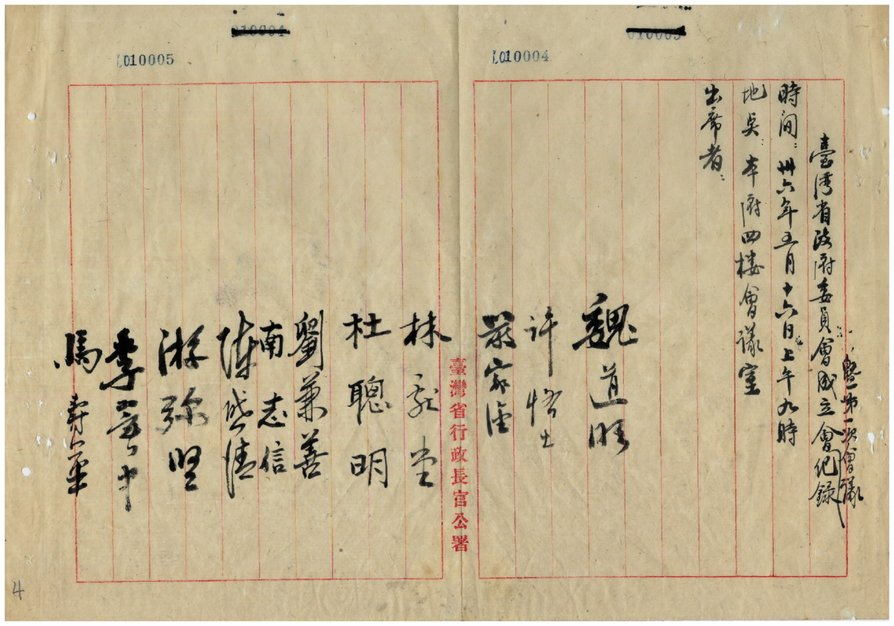 臺灣省政府委員會成立會紀錄
第一次會議
時間：卅六年五月十六日上午九時
地点：本府四楼會議室
出席者：
魏道明
許恪士
嚴家淦
臺灣省行政長官公署
林獻堂
杜聰明
劉兼善
南志信
陳啓清
游弥堅
李翼中
馬壽華
L010004
L010005
4